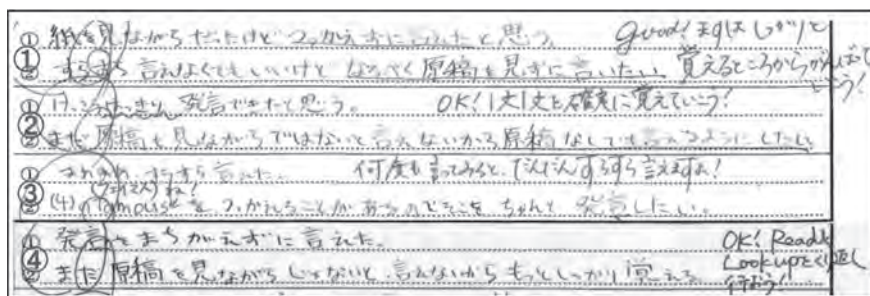 ① 紙を見ながらだったけどつっかえずに言えたと思う。 Good! まずはしっかりと
② すらすら言えなくてもいいけどなるべく原稿を見ずに言いたい 覚えるところからがんばって
いこう!
①
① けっこうはっきり発言できたと思う。 OK! 1文1文を確実に覚えていこう!
② まだ原稿を見ながらではないと言えないから原稿なしでも言えるようにしたい
②
① まあまあすらすら言えた。 何度も言ってみると、だんだんすらすら言えますよ!
ね!
② (4)のfamousを、つっかえることがあるのでそこをちゃんと発言したい。
③
① 発言をまちがえずに言えた。 OK! Read &
② まだ原稿を見ながらじゃないと言えないからもっとしっかり覚える Look upをくり返し
行おう!
④